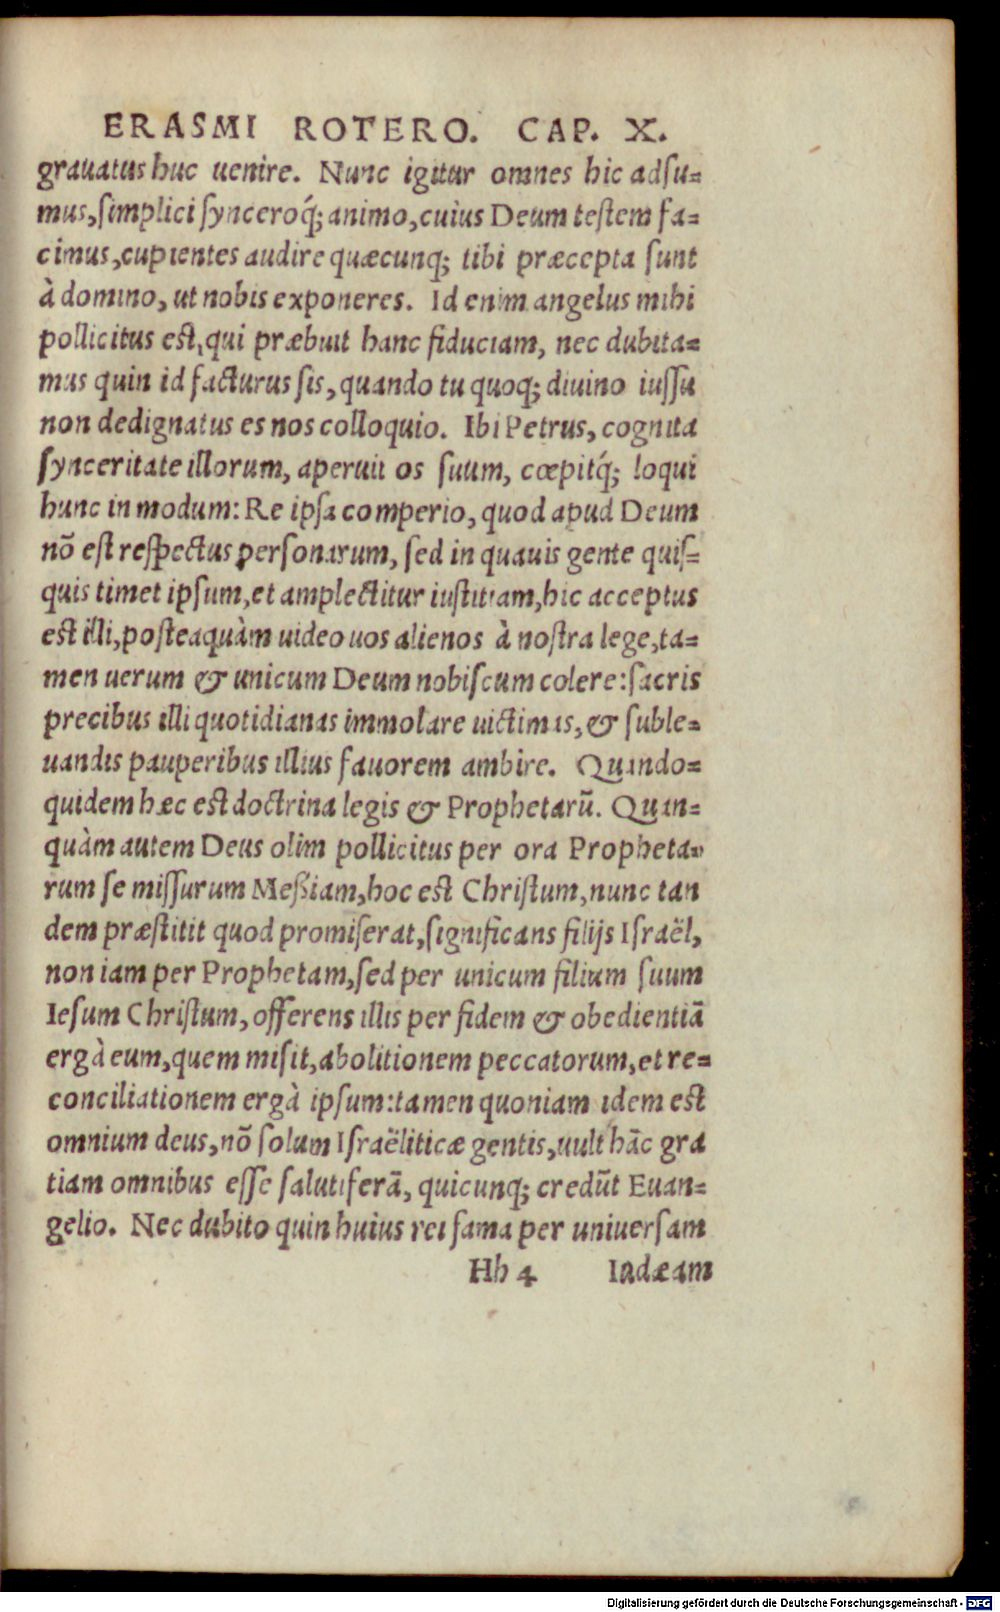 ERASMI ROTERO. CAP. X.
grauatus huc uenire. Nunc igitur omnes hic adsu=
mus, simplici synceroq́; animo, cuius Deum testem fa=
cimus, cupientes audire quæcunq; tibi præcepta sunt
à domino, ut nobis exponeres. Id enim angelus mihi
pollicitus est, qui præbuit hanc fiduciam, nec dubita=
mus quin id facturus sis, quando tu quoq; diuino iussu
non dedignatus es nos colloquio. Ibi Petrus, cognita
synceritate illorum, aperuit os suum, cœpitq́; loqui
hunc in modum: Re ipsa comperio, quod apud Deum
nō est respectus personarum, sed in quauis gente quis=
quis timet ipsum, et amplectitur iustitiam, hic acceptus
est illi, posteaquàm uideo uos alienos à nostra lege, ta=
men uerum & unicum Deum nobiscum colere: sacris
precibus illi quotidianas immolare uictimas, & suble=
uandis pauperibus illius fauorem ambire. Quando=
quidem hæc est doctrina legis & Prophetarū. Quan=
quàm autem Deus olim pollicitus per ora Propheta=
rum se missurum Meßiam, hoc est Christum, nunc tan
dem præstitit quod promiserat, significans filijs Israël,
non iam per Prophetam, sed per unicum filium suum
Iesum Christum, offerens illis per fidem & obedientiā
ergà eum, quem misit, abolitionem peccatorum, et re=
conciliationem ergà ipsum: tamen quoniam idem est
omnium deus, nō solum Israëliticæ gentis, uult hāc gra
tiam omnibus esse salutiferā, quicunq; credūt Euan=
gelio. Nec dubito quin huius rei fama per uniuersam
Hh 4 Iudæam
Digitalisierung gefördert durch die Deutsche Forschungsgemeinschaft - DFG